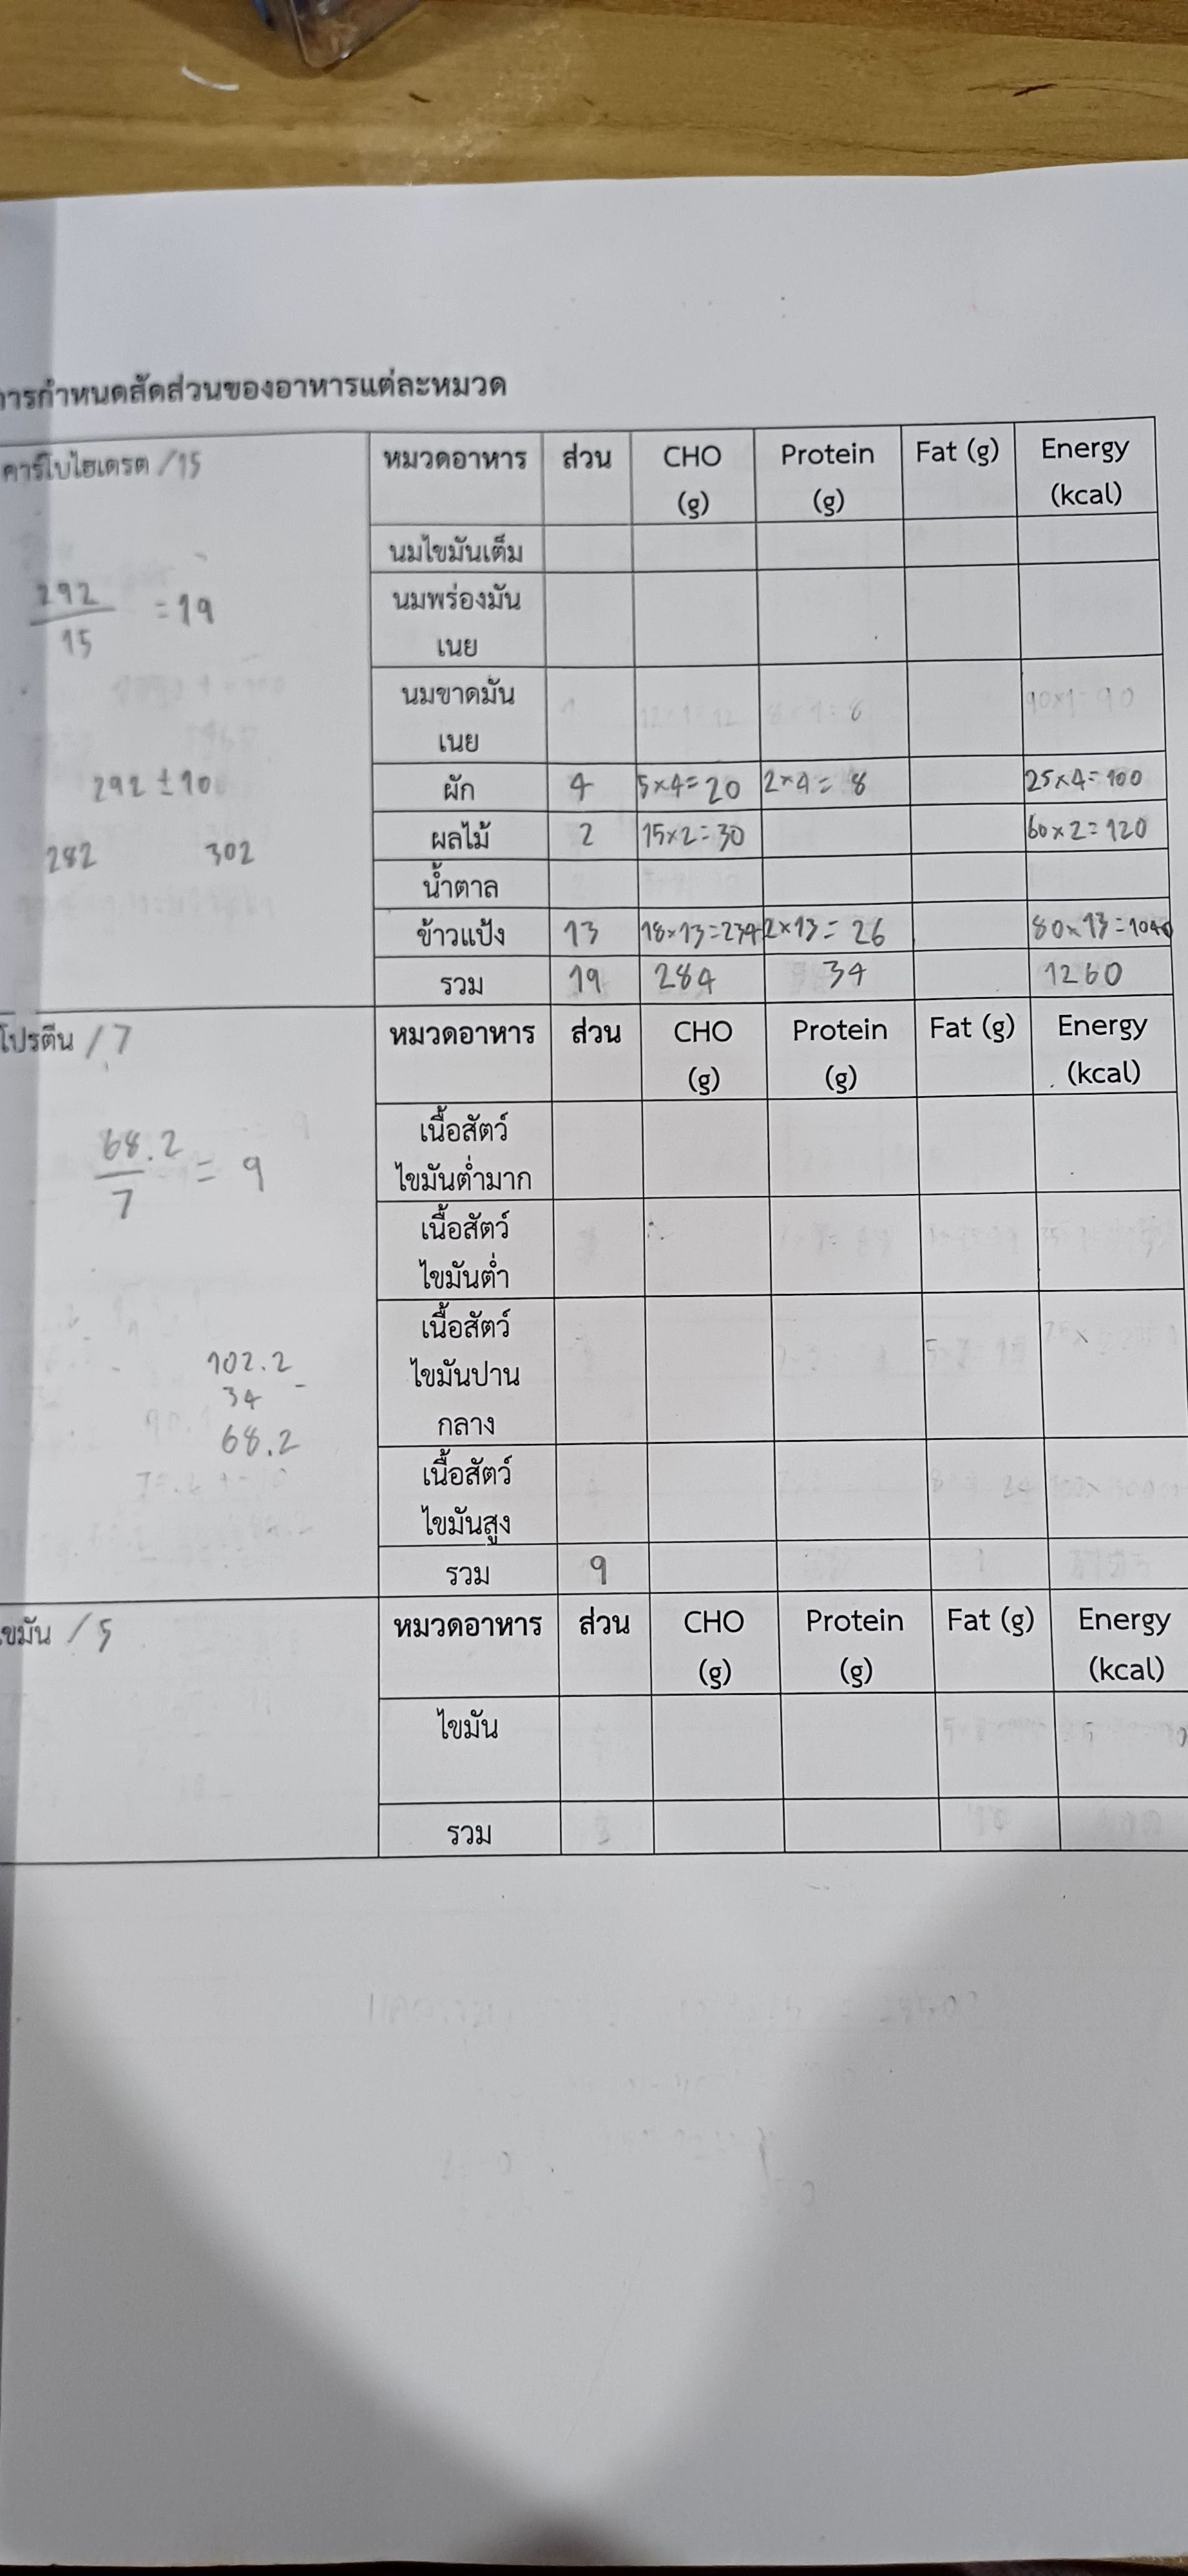 การกำหนดสัดส่วนของอาหารแต่ละหมวด
คาร์โบไฮเดรต /15
หมวดอาหาร ส่วน CHO (g) Protein (g) Fat (g) Energy (kcal)
นมไขมันเต็ม
292/15 = 19
นมพร่องมันเนย
นมขาดมันเนย 12×1=12 8×1=8 90×1=90
292 ± 10
ผัก 4 5×4=20 2×4=8 25×4=100
282 302
ผลไม้ 2 15×2=30 60×2=120
น้ำตาล
ข้าวแป้ง 13 18×13=234 2×13=26 80×13=1040
รวม 19 284 34 1260
โปรตีน /7
หมวดอาหาร ส่วน CHO (g) Protein (g) Fat (g) Energy (kcal)
68.2/7 = 9
เนื้อสัตว์ไขมันต่ำมาก
เนื้อสัตว์ไขมันต่ำ
102.2
34 -
68.2
เนื้อสัตว์ไขมันปานกลาง
เนื้อสัตว์ไขมันสูง
รวม 9
ไขมัน /5
หมวดอาหาร ส่วน CHO (g) Protein (g) Fat (g) Energy (kcal)
ไขมัน
รวม